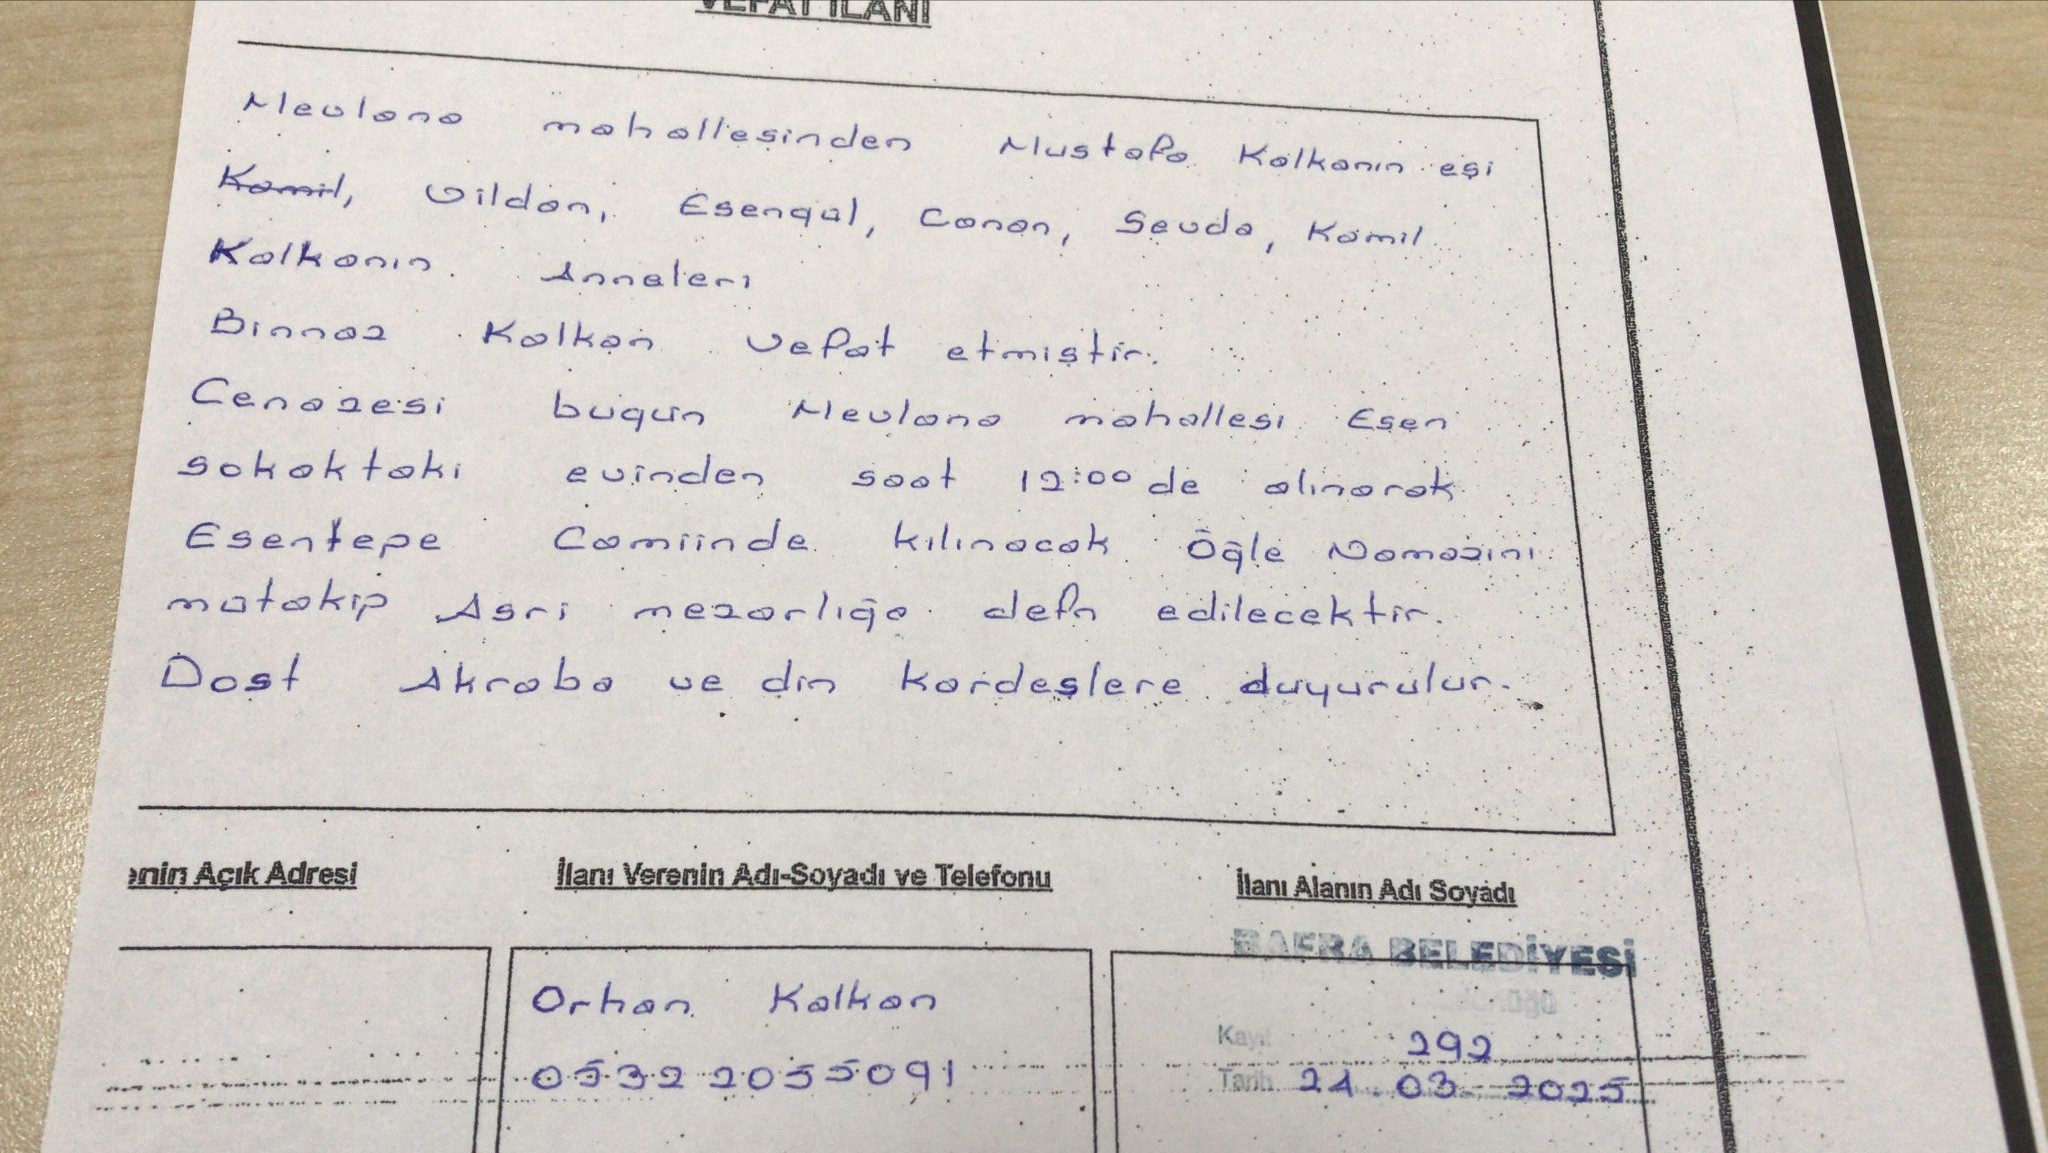 VEFAT İLANI
Mevlana mahallesinden Mustafa Kalkanın eşi
Kamil, Vildan, Esengül, Canan, Sevda, Kamil
Kalkanın Anneleri
Binnaz Kalkan vefat etmiştir.
Cenazesi bugün Mevlana mahallesi Esen
sokaktaki evinden saat 12:00 de alınarak
Esentepe Camiinde kılınacak Öğle Namazını
mütakip Asri mezarlığa defn edilecektir.
Dost Akraba ve din kardeşlere duyurulur.
enin Açık Adresi
İlanı Verenin Adı-Soyadı ve Telefonu
İlanı Alanın Adı Soyadı
BAFRA BELEDİYESİ
Orhan Kalkan
Kayıt 292
0532 2055091
Tarih 21.03.2025